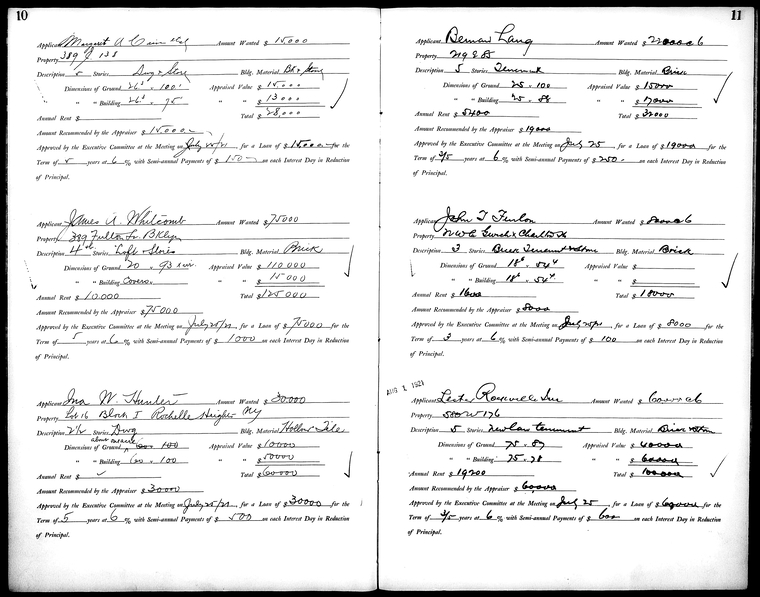 10
Applicant Margaret A Cain & al Amount Wanted $ 15000
Property 389 J 138
Description 5 Stories Dwg & Store Bldg. Material Bk & Stone
Dimensions of Ground 26³ x 100' Appraised Value $ 15000
" " Building 26³ x 75 " " $ 13000
Annual Rent $ Total $ 28,000
Amount Recommended by the Appraiser $ 15000
Approved by the Executive Committee at the Meeting on July 25/21 for a Loan of $ 15000 for the
Term of 5 years at 6 % with Semi-annual Payments of $ 150 on each Interest Day in Reduction
of Principal.
Applicant James A. Whitcomb Amount Wanted $ 75000
Property 389 Fulton St. BKlyn
Description 4 st. Stories Loft & Stores Bldg. Material Brick
Dimensions of Ground 20 x 93 x irr. Appraised Value $ 110,000
" " Building Covers. " " $ 15000
Annual Rent $ 10,000 Total $ 125000
Amount Recommended by the Appraiser $ 75000
Approved by the Executive Committee at the Meeting on July 25/21 for a Loan of $ 75000 for the
Term of 5 years at 6 % with Semi-annual Payments of $ 1000 on each Interest Day in Reduction
of Principal.
Applicant Ina W. Hunter Amount Wanted $ 30000
Property Lot 16 Block I Rochelle Heights NY
Description 2½ Stories Dwg Bldg. Material Hollow Tile
Dimensions of Ground 100 Appraised Value $ 10000
" " Building 60 x 100 " " $ 50000
Annual Rent $ Total $ 60000
Amount Recommended by the Appraiser $ 30000
Approved by the Executive Committee at the Meeting on July 25/21 for a Loan of $ 30000 for the
Term of 5 years at 6 % with Semi-annual Payments of $ 500 on each Interest Day in Reduction
of Principal.
11
Applicant Bernard Lang Amount Wanted $ 22000 @ 6
Property 219 E 85
Description 5 Stories Tenement Bldg. Material Brick
Dimensions of Ground 25 x 100 Appraised Value $ 15000
" " Building 25 x 88 " " $ 17000
Annual Rent $ 5400 Total $ 32000
Amount Recommended by the Appraiser $ 19000
Approved by the Executive Committee at the Meeting on July 25 for a Loan of $ 19000 for the
Term of 3/5 years at 6 % with Semi-annual Payments of $ 250 on each Interest Day in Reduction
of Principal.
Applicant John T Fenlon Amount Wanted $ 8000 @ 6
Property N W C Grnch & Charlton St
Description 3 Stories Brick Tenement & Store Bldg. Material Brick
Dimensions of Ground 18⁶ x 54⁴ Appraised Value $
" " Building 18⁶ x 54⁴ " " $
Annual Rent $ 1600 Total $ 18000
Amount Recommended by the Appraiser $ 8000
Approved by the Executive Committee at the Meeting on July 25/21 for a Loan of $ 8000 for the
Term of 3 years at 6 % with Semi-annual Payments of $ 100 on each Interest Day in Reduction
of Principal.
AUG 1 1921
Applicant Inc Amount Wanted $ 60000 @ 6
Property 500 W 176
Description 5 Stories new law tenement Bldg. Material Brick & Stone
Dimensions of Ground 75 x 89 Appraised Value $ 40000
" " Building 75 x 78 " " $ 60000
Annual Rent $ 19200 Total $ 100000
Amount Recommended by the Appraiser $ 60,000
Approved by the Executive Committee at the Meeting on July 25 for a Loan of $ 60000 for the
Term of 3/5 years at 6 % with Semi-annual Payments of $ 600 on each Interest Day in Reduction
of Principal.